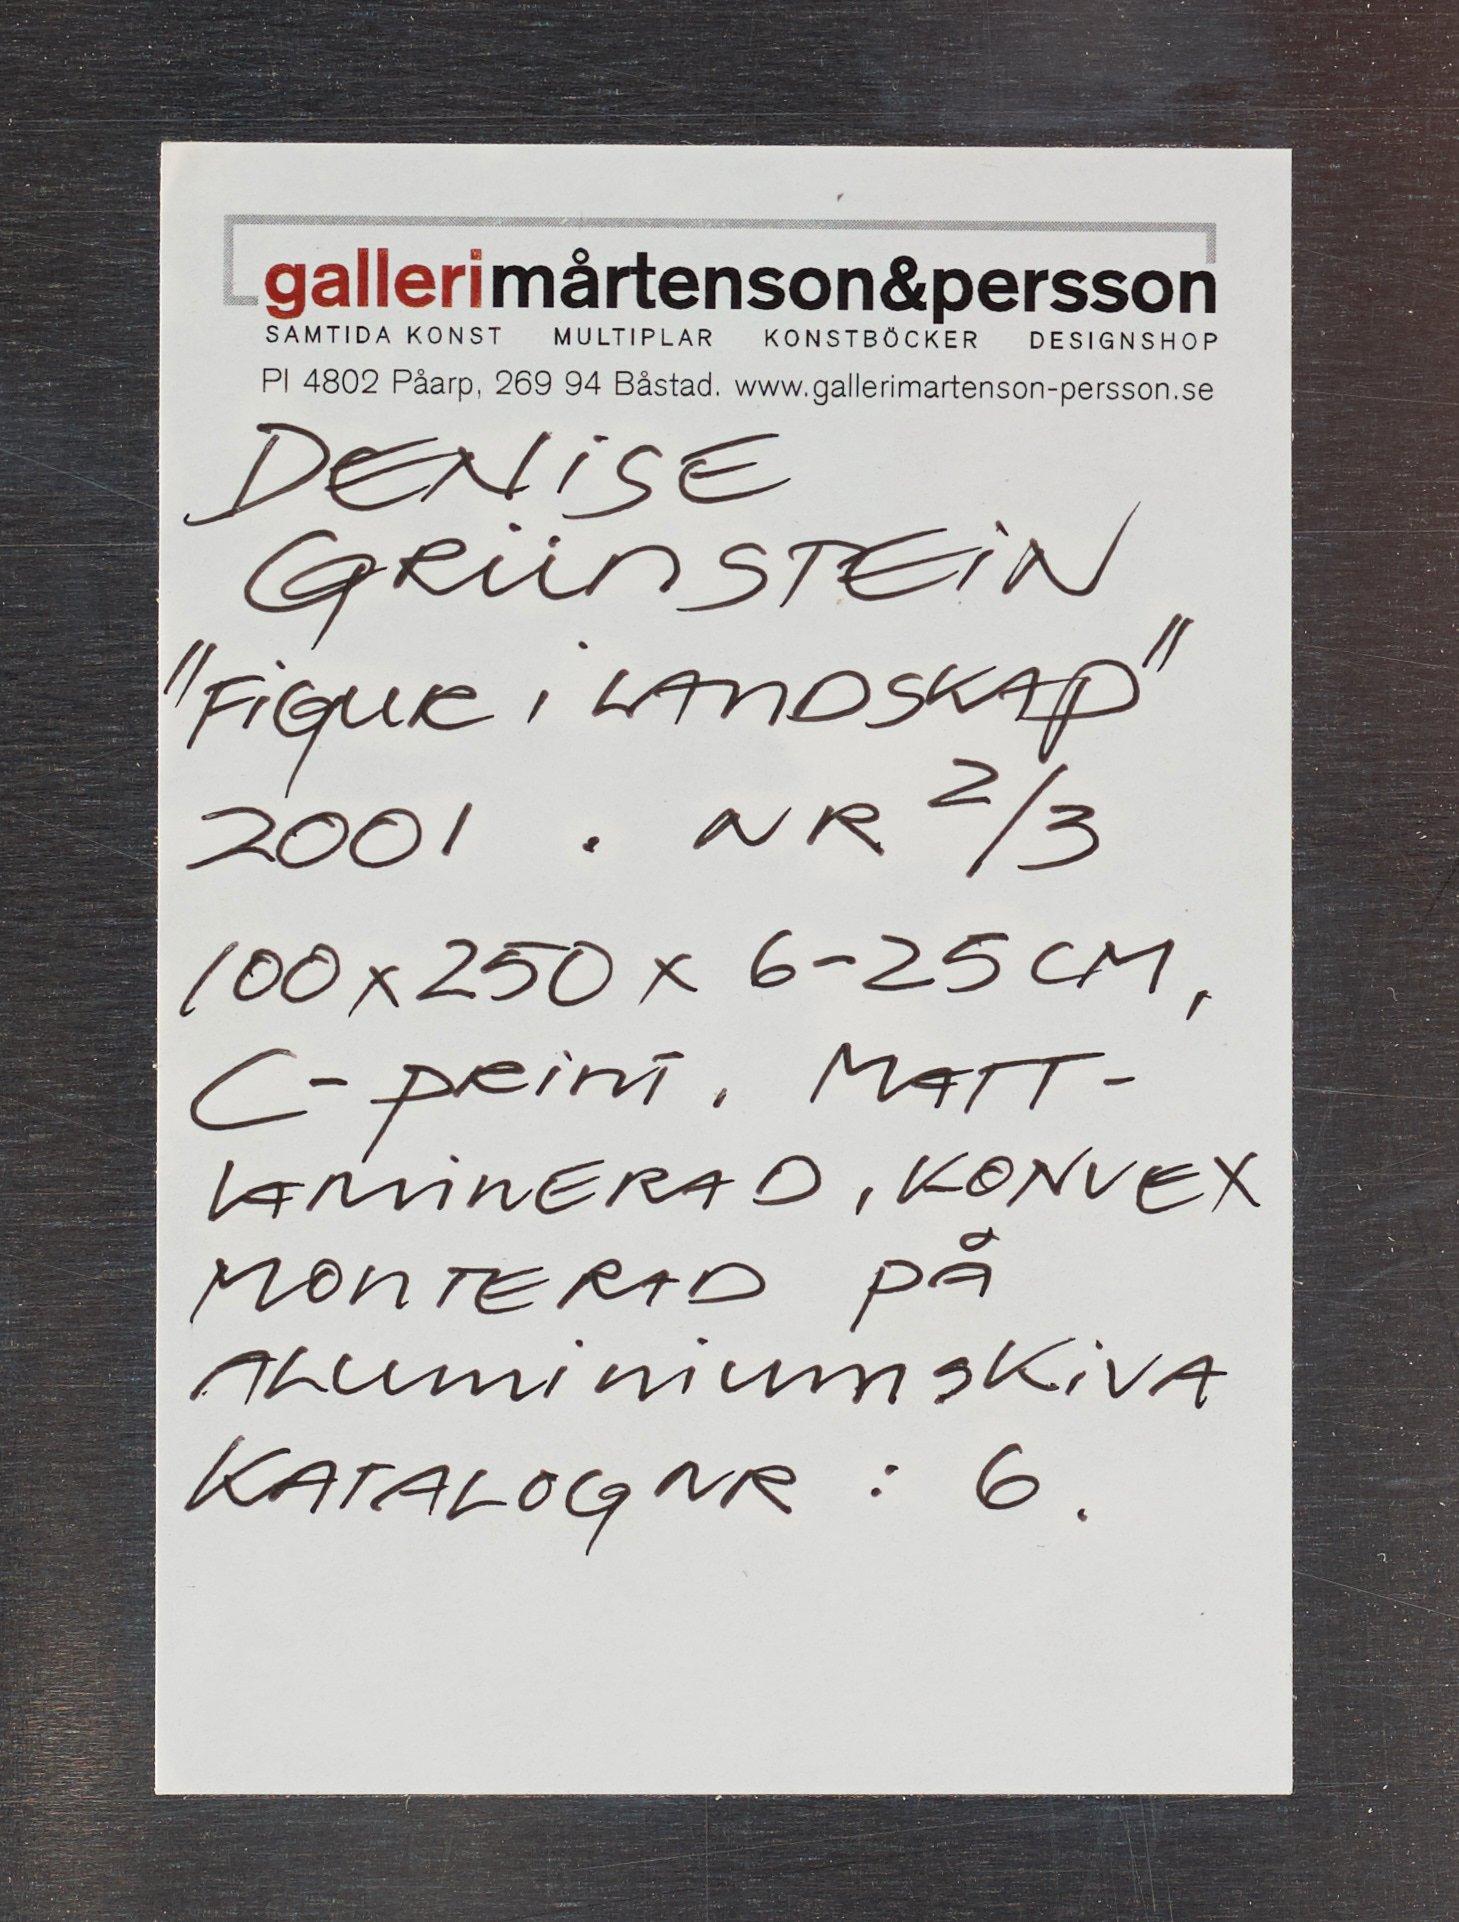 gallerimårtenson&persson
SAMTIDA KONST MULTIPLAR KONSTBÖCKER DESIGNSHOP
Pl 4802 Påarp, 269 94 Båstad. www.gallerimartenson-persson.se
DENISE
GRÜNSTEIN
"FIGUR I LANDSKAP"
2001 . NR 2/3
100 x 250 x 6-25 CM,
C-print. MATT-
LAMINERAD, KONVEX
MONTERAD på
ALUMINIUMSKIVA
KATALOGNR : 6.